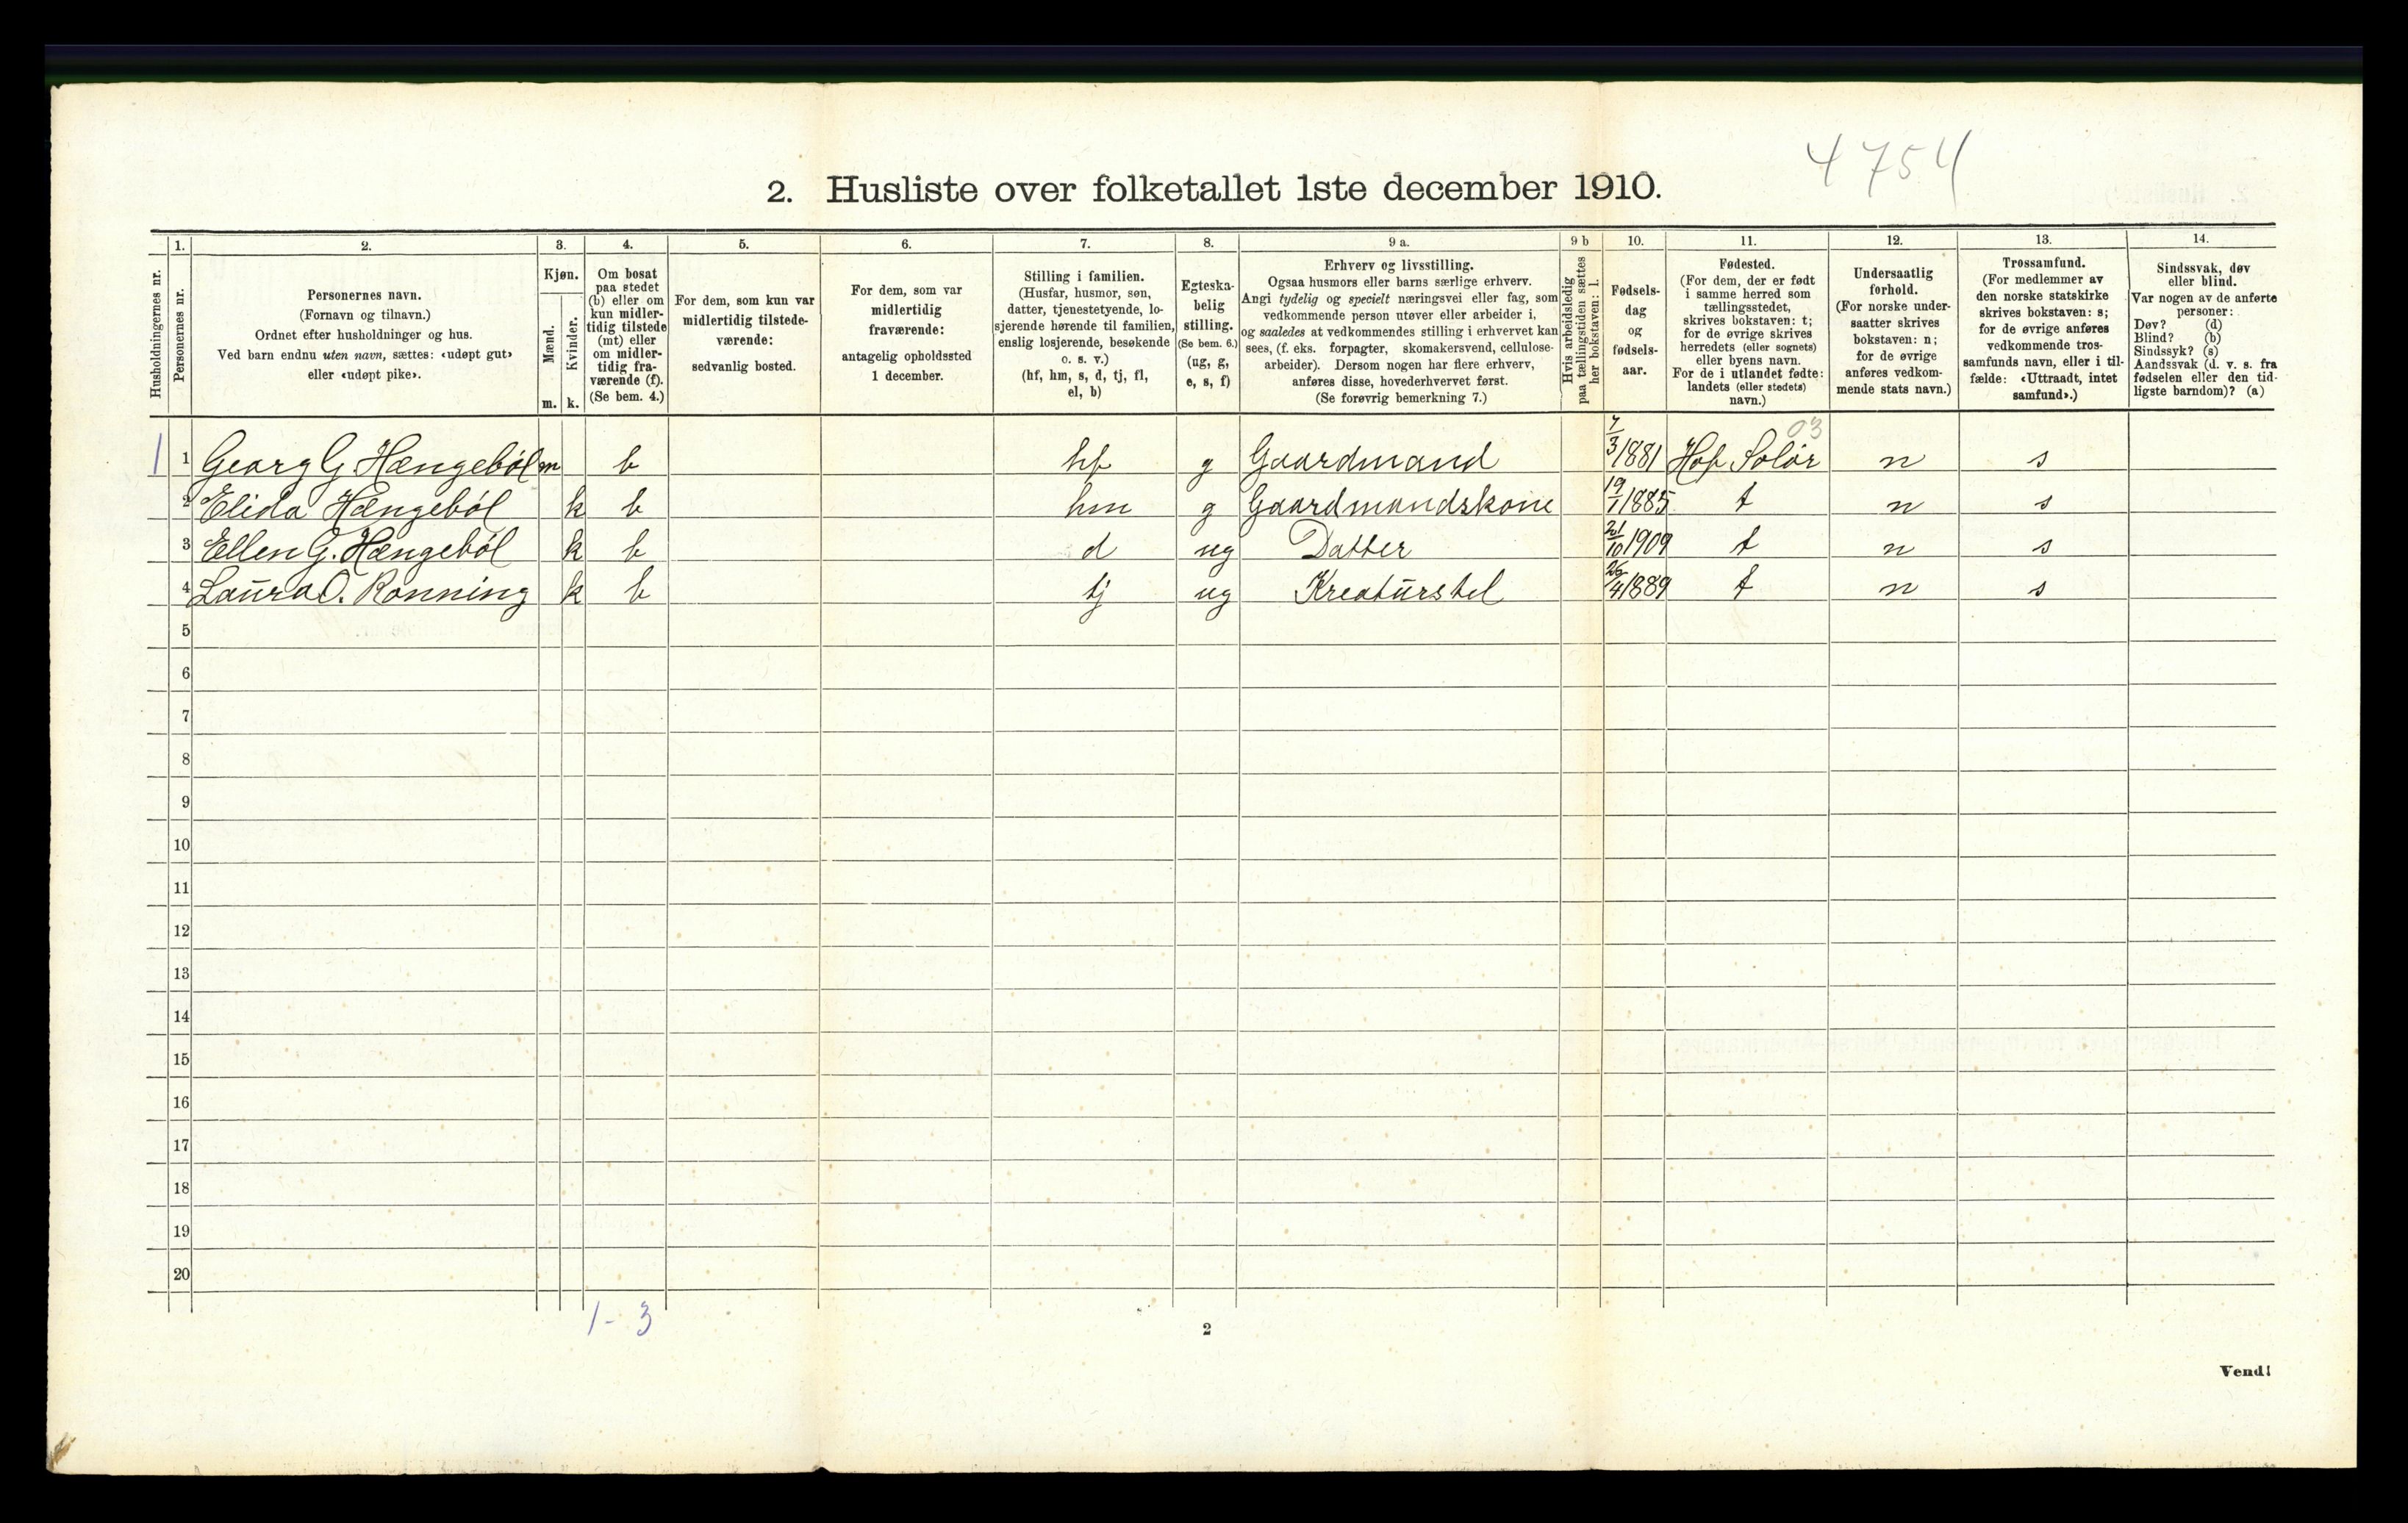 4754
2. Husliste over folketallet 1ste december 1910.
Husholdningernes nr.
1.
Personernes nr.
2.
Personernes navn.
(Fornavn og tilnavn.)
Ordnet efter husholdninger og hus.
Ved barn endnu uten navn, sættes: «udøpt gut»
eller «udøpt pike».
3.
Kjøn.
Mænd.
m.
Kvinder.
k.
4.
Om bosat
paa stedet
(b) eller om
kun midler-
tidig tilstede
(mt) eller
om midler-
tidig fra-
værende (f).
(Se bem. 4.)
5.
For dem, som kun var
midlertidig tilstede-
værende:
sedvanlig bosted.
6.
For dem, som var
midlertidig
fraværende:
antagelig opholdssted
1 december.
7.
Stilling i familien.
(Husfar, husmor, søn,
datter, tjenestetyende, lo-
sjerende hørende til familien,
enslig losjerende, besøkende
o. s. v.)
(hf, hm, s, d, tj, fl,
el, b)
8.
Egteska-
belig
stilling.
(Se bem. 6.)
(ug, g,
e, s, f)
9 a.
Erhverv og livsstilling.
Ogsaa husmors eller barns særlige erhverv.
Angi tydelig og specielt næringsvei eller fag, som
vedkommende person utøver eller arbeider i,
og saaledes at vedkommendes stilling i erhvervet kan
sees, (f. eks. forpagter, skomakersvend, cellulose-
arbeider). Dersom nogen har flere erhverv,
anføres disse, hovederhvervet først.
(Se forøvrig bemerkning 7.)
9 b
Hvis arbeidsledig
paa tællingstiden sættes
her bokstaven: l.
10.
Fødsels-
dag
og
fødsels-
aar.
11.
Fødested.
(For dem, der er født
i samme herred som
tællingsstedet,
skrives bokstaven: t;
for de øvrige skrives
herredets (eller sognets)
eller byens navn.
For de i utlandet fødte:
landets (eller stedets)
navn.)
12.
Undersaatlig
forhold.
(For norske under-
saatter skrives
bokstaven: n;
for de øvrige
anføres vedkom-
mende stats navn.)
13.
Trossamfund.
(For medlemmer av
den norske statskirke
skrives bokstaven: s;
for de øvrige anføres
vedkommende tros-
samfunds navn, eller i til-
fælde: «Uttraadt, intet
samfund».)
14.
Sindssvak, døv
eller blind.
Var nogen av de anførte
personer:
Døv? (d)
Blind? (b)
Sindssyk? (s)
Aandssvak (d. v. s. fra
fødselen eller den tid-
ligste barndom)? (a)
03
1 1 Georg G. Hængebøl m b hf g Gaardmand 7/3 1881 Hof Solør n s
2 Elida Hængebøl k b hm g Gaardmandskone 19/1 1885 t n s
3 Ellen G. Hængebøl k b d ug Datter 21/10 1909 t n s
4 Laura O. Ronning k b tj ug Kreaturstel 26/4 1889 t n s
5
6
7
8
9
10
11
12
13
14
15
16
17
18
19
20
1-3
2
Vend!